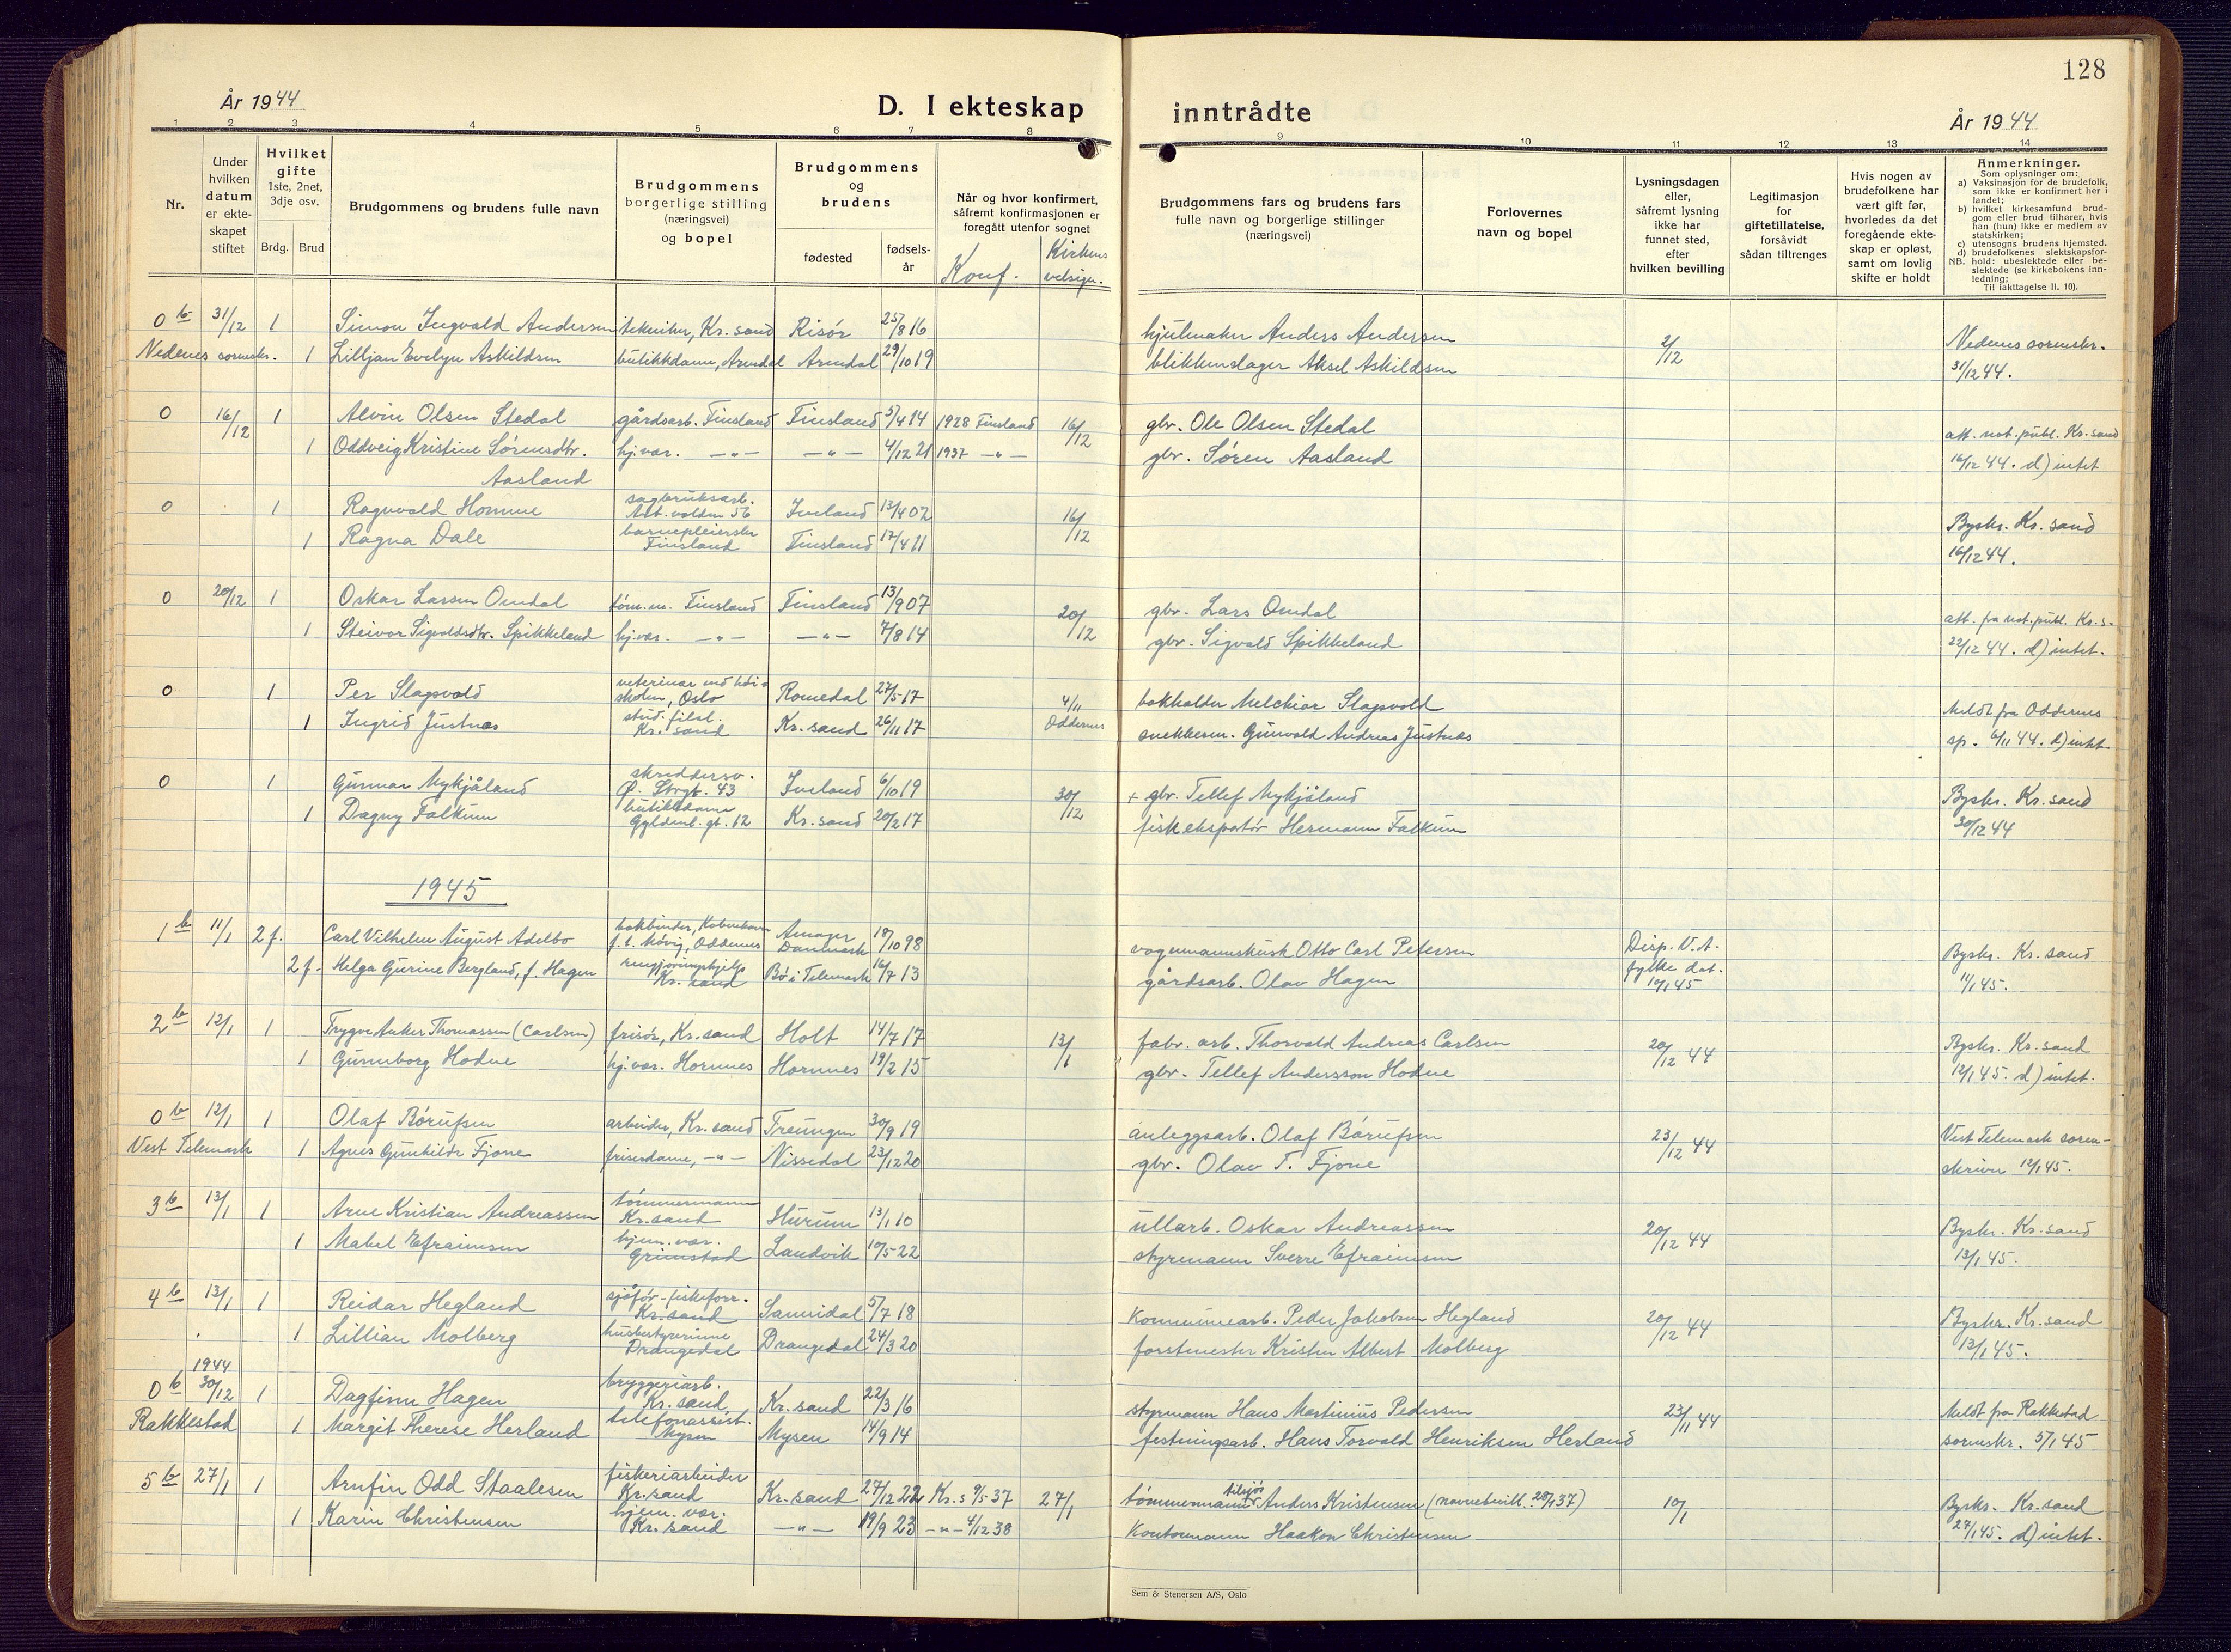 128
År 1944
D. I ekteskap
inntrådte
År 1944
1 2 3 4 5 6 7 8 9 10 11 12 13 14
Nr.
Under
hvilken
datum
er ekte-
skapet
stiftet
Hvilket
gifte
1ste, 2net,
3dje osv.
Brdg.
Brud
Brudgommens og brudens fulle navn
Brudgommens
borgerlige stilling
(næringsvei)
og bopel
Brudgommens
og
brudens
fødested
fødsels-
år
Når og hvor konfirmert,
såfremt konfirmasjonen er
foregått utenfor sognet
Konf.
Kirkens
velsign.
Brudgommens fars og brudens fars
fulle navn og borgerlige stillinger
(næringsvei)
Forlovernes
navn og bopel
Lysningsdagen
eller,
såfremt lysning
ikke har
funnet sted,
efter
hvilken bevilling
Legitimasjon
for
giftetillatelse,
forsåvidt
sådan tiltrenges
Hvis nogen av
brudefolkene har
vært gift før,
hvorledes da det
foregående ekte-
skap er opløst,
samt om lovlig
skifte er holdt
Anmerkninger.
Som oplysninger om:
a) Vaksinasjon for de brudefolk,
som ikke er konfirmert her i
landet;
b) hvilket kirkesamfund brud-
gom eller brud tilhører, hvis
han (hun) ikke er medlem av
statskirken;
c) utensogns brudens hjemsted.
d) brudefolkenes slektskapsfor-
NB. hold: ubeslektede eller be-
slektede (se kirkebokens inn-
ledning;
Til iakttagelse II. 10).
0 b 31/12 1 Simon Ingvald Andersen tekniker, Kr.sand Risør 25/8 16 hjulmaker Anders Andersen 2/12 Nedenes sorenskr.
Nedenes sorenskr. 1 Lilljan Evelyn Askildsen butikkdame, Arendal Arendal 29/10 19 blikkenslager Aksel Askildsen 31/12 44.
0 16/12 1 Alvin Olsen Stedal gårdsarb. Finsland Finsland 5/4 14 1928 Finsland 16/12 gbr. Ole Olsen Stedal att. not. publ. Kr.sand
1 Oddveig Kristine Sørensdtr. hj.var. -"- -"- 4/12 21 1937 -"- gbr. Søren Aasland 16/12 44. d) intet
Aasland
0 1 Ragnvald Homme sagbruksarb.
Art. volden 56 Iveland 13/4 02 16/12 Byskr. Kr.sand
1 Ragna Dale barnepleierske
Finsland Finsland 17/4 11 16/12 44.
0 20/12 1 Oskar Larsen Omdal tøm.m. Finsland Finsland 13/9 07 20/12 gbr. Lars Omdal att. fra not. publ. Kr.s.
1 Steivor Sigvaldsdtr. Spikkeland hj.var. -"- -"- 7/8 14 gbr. Sigvald Spikkeland 22/12 44. d) intet.
0 1 Per Slapsvold veterinær ved høi-
skolen, Oslo Romedal 27/5 17 4/11 bokholder Melchior Slapsvold Meldt fra Oddernes
1 Ingrid Justnes stud. filol.
Kr. sand Kr.sand 26/11 17 Oddernes snekkerm. Gunvald Andreas Justnæs sp. 6/11 44. d) intet
0 1 Gunnar Mykjåland skreddersv.
Ø. Strgt. 43 Iveland 6/10 19 30/12 + gbr. Tellef Mykjåland Byskr. Kr.sand
1 Dagny Falkum butikkdame
Gyldenl. gt. 12 Kr.sand 20/2 17 fiskekspatør Hermann Falkum 30/12 44
1945
1 b 11/1 2 f. Carl Vilhelm August Adelbo bokbinder, København
f. t. Møvig, Oddernes Amager
Danmark 18/10 98 vognmannskusk Otto Carl Petersen Disp. V. A. Byskr. Kr.sand
2 f. Helga Gurine Bergland, f. Hagen rengjøringshjelp
Kr. sand Bø i Telemark 16/7 13 gårdsarb. Olav Hagen fylke dat.
10/1 45 11/1 45.
2 b 12/1 1 Trygve Anker Thomassen (Carlsen) frisør, Kr.sand Holt 14/7 17 13/1 fabr. arb. Thorvald Andreas Carlsen 20/12 44 Byskr. Kr.sand
1 Gunnborg Hodne hj.var. Hornnes Hornnes 19/2 15 gbr. Tellef Andersson Hodne 12/1 45. d) intet.
0 b 12/1 1 Olaf Bórufsen arbeider, Kr.sand Treungen 30/9 19 anleggsarb. Olaf Bórufsen 23/12 44 Vest Telemark soren-
Vest Telemark 1 Agnes Gunhilde Fjone friserdame, -"- Nissedal 23/12 20 gbr. Olav T. Fjone skriver 12/1 45.
3 b 13/1 1 Arne Kristian Andreassen tømmermann
Kr.sand Hurum 13/1 10 ullarb. Oskar Andreassen 20/12 44 Byskr. Kr.sand
1 Mabel Efraimsen hjem. var.
Grimstad Landvik 10/5 22 styrmann Sverre Efraimsen 13/1 45.
4 b 13/1 1 Reidar Hegland sjåfør - fiskeforr.
Kr.sand Sannidal 5/7 18 Kommunearb. Peder Jakobsen Hegland 20/12 44 Byskr. Kr.sand
1 Lillian Molberg husbestyrerinne
Drangedal Drangedal 24/3 20 forstmester Kristen Albert Molberg 13/1 45.
1944
0 b 30/12 1 Dagfinn Hagen bryggeriarb.
Kr. sand Kr. sand 22/3 16 styrmann Hans Martinius Pedersen 23/11 44 Meldt fra Rakkestad
Rakkestad 1 Margit Therese Herland telefonassist.
Mysen Mysen 14/9 14 festningsarb. Hans Torvald Henriksen Herland sorenskr. 5/1 45
5 b 27/1 1 Arnfin Odd Staalesen fiskeriarbeider
Kr.sand Kr.sand 27/12 22 Kr.s 9/5 37 27/1 tømmermann Anders Kristensen (navnebevill. 28/1 37) 10/1 Byskr. Kr.sand
1 Karin Christensen hjem. var.
Kr. sand -"- 19/9 23 -"- 4/12 38 Kontormann Haakon Christensen 27/1 45. d) intet.
Sem & Stenersen A/S, Oslo